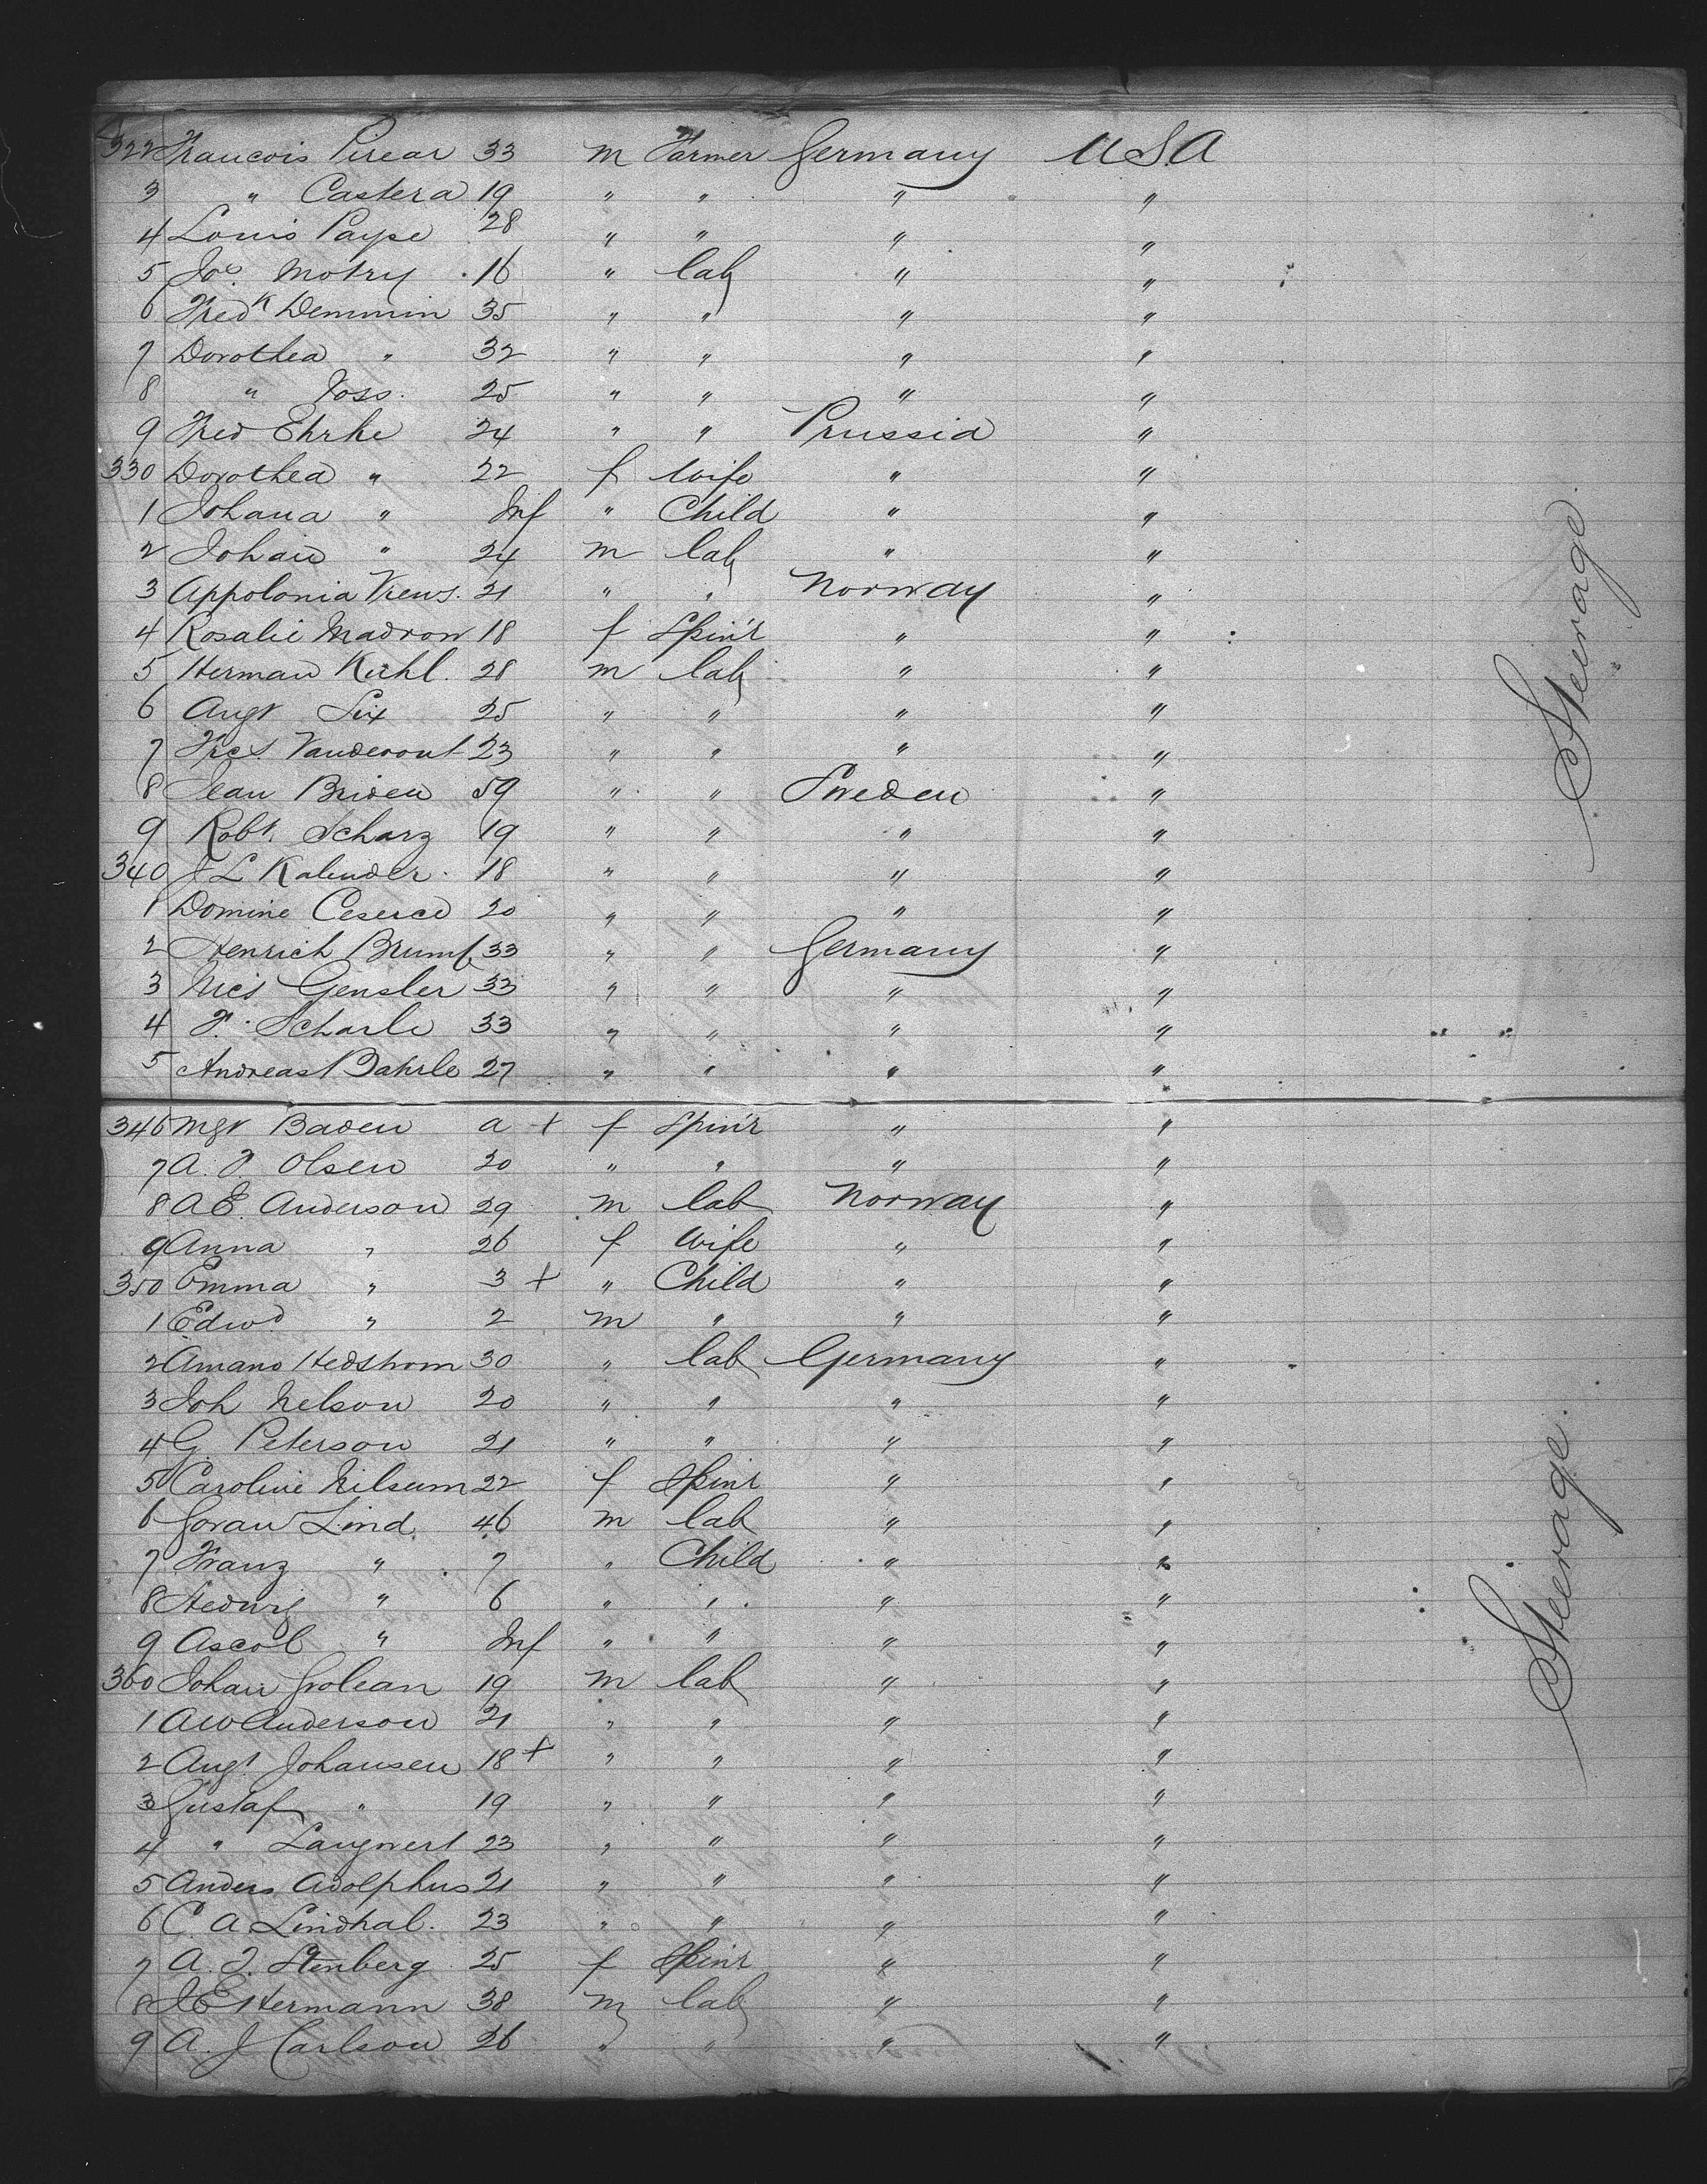 322 Francois Pirear 33 m Farmer Germany U.S.A
3 " Castera 19 " " " "
4 Louis Paype 28 " " " "
5 Jos. Motry 16 " lab " "
6 Fredk Demmin 35 " " " "
7 Dorothea " 32 " " " "
8 " Joss. 25 " " " "
9 Fred Ehrke 24 " " Prussia "
330 Dorothea " 22 f Wife " "
1 Johana " Inf " Child " "
2 Johan " 24 m lab " "
3 Appolonia 21 " " Norway "
4 Rosalie Madron 18 f Spin'r " "
5 Herman Kuhl. 28 m lab " "
6 Augt Six 25 " " " "
7 Vanderout 23 " " " "
8 Jean Briden 59 " " Sweden "
9 Robt. Scharz 19 " " " "
340 J L Kalender. 18 " " " "
1 Domine 20 " " " "
2 Henrich Brumf 33 " " Germany "
3 Nics Gensler 33 " " " "
4 F. Scharle 33 " " " "
5 Andreas Bahrle 27 " " " "
346 Mgt Baden a + f Spin'r " "
7 A. F. Olsen 20 " " " "
8 A E. Anderson 29 m lab Norway "
9 Anna " 26 f Wife " "
350 Emma " 3 + " Child " "
1 Edwd " 2 m " " "
2 Amano Hedstrom 30 " lab Germany "
3 Joh Nelson 20 " " " "
4 G. Peterson 21 " " " "
5 Caroline Nilsum 22 f Spinr " "
6 Goran Lind 46 m lab " "
7 Franz " 7 " Child " "
8 Hedwig " 6 " " " "
9 Ascol " Inf " " " "
360 Johan Grolean 19 m lab " "
1 A W Anderson 21 " " " "
2 Augt Johansen 18 + " " " "
3 Gustaf " 19 " " " "
4 " Langwert 23 " " " "
5 Anders Adolphus 21 " " " "
6 C. A Lindhal. 23 " " " "
7 A. J. Stenberg 25 f Spinr " "
8 J E Hermann 38 m lab " "
9 A. J Carlson 26 " " " "
Steerage.
Steerage.